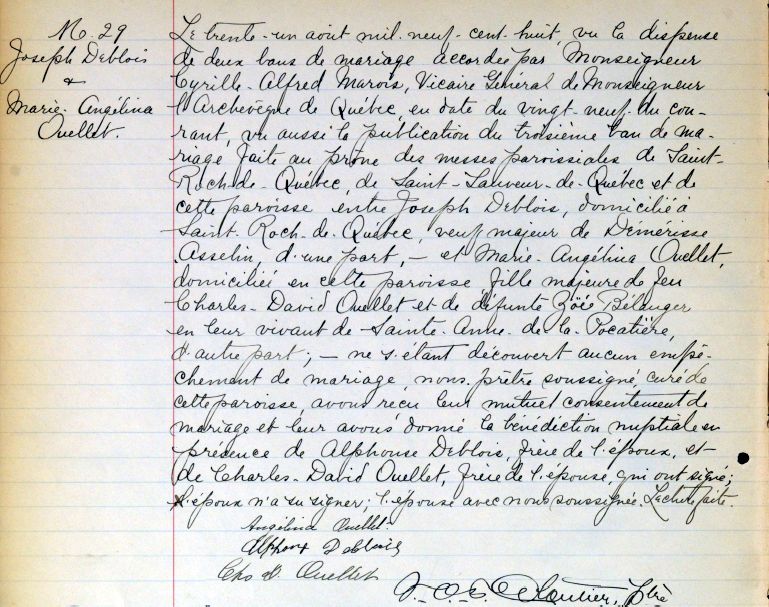 M. 29
Joseph Deblois
&
Marie-Angélina
Ouellet.
Le trente-un août mil-neuf-cent-huit, vu la dispense
de deux bans de mariage accordée par Monseigneur
Cyrille-Alfred Marois, Vicaire Général de Monseigneur
l'Archevêque de Québec, en date du vingt-neuf du cou-
rant, vu aussi la publication du troisième ban de ma-
riage faite au prône des messes paroissiales de Saint-
Roch-de-Québec, de Saint-Sauveur-de-Québec et de
cette paroisse entre Joseph Deblois, domicilié à
Saint-Roch-de-Québec, veuf majeur de Démérisse
Asselin, d'une part, — et Marie-Angélina Ouellet,
domiciliée en cette paroisse, fille majeure de feu
Charles-David Ouellet et de défunte Zöé Bélanger
en leur vivant de Sainte-Anne-de-la-Pocatière,
d'autre part; — ne s'étant découvert aucun empê-
chement de mariage, nous, prêtre soussigné, curé de
cette paroisse, avons reçu leur mutuel consentement de
mariage et leur avons donné la bénédiction nuptiale en
présence de Alphonse Deblois, frère de l'époux, et
de Charles-David Ouellet, frère de l'épouse, qui ont signé;
l'époux n'a su signer; l'épouse avec nous soussignée. Lecture faite.
Angélina Ouellet.
Alphonse Deblois
Chs D. Ouellet
Cloutier, Ptre